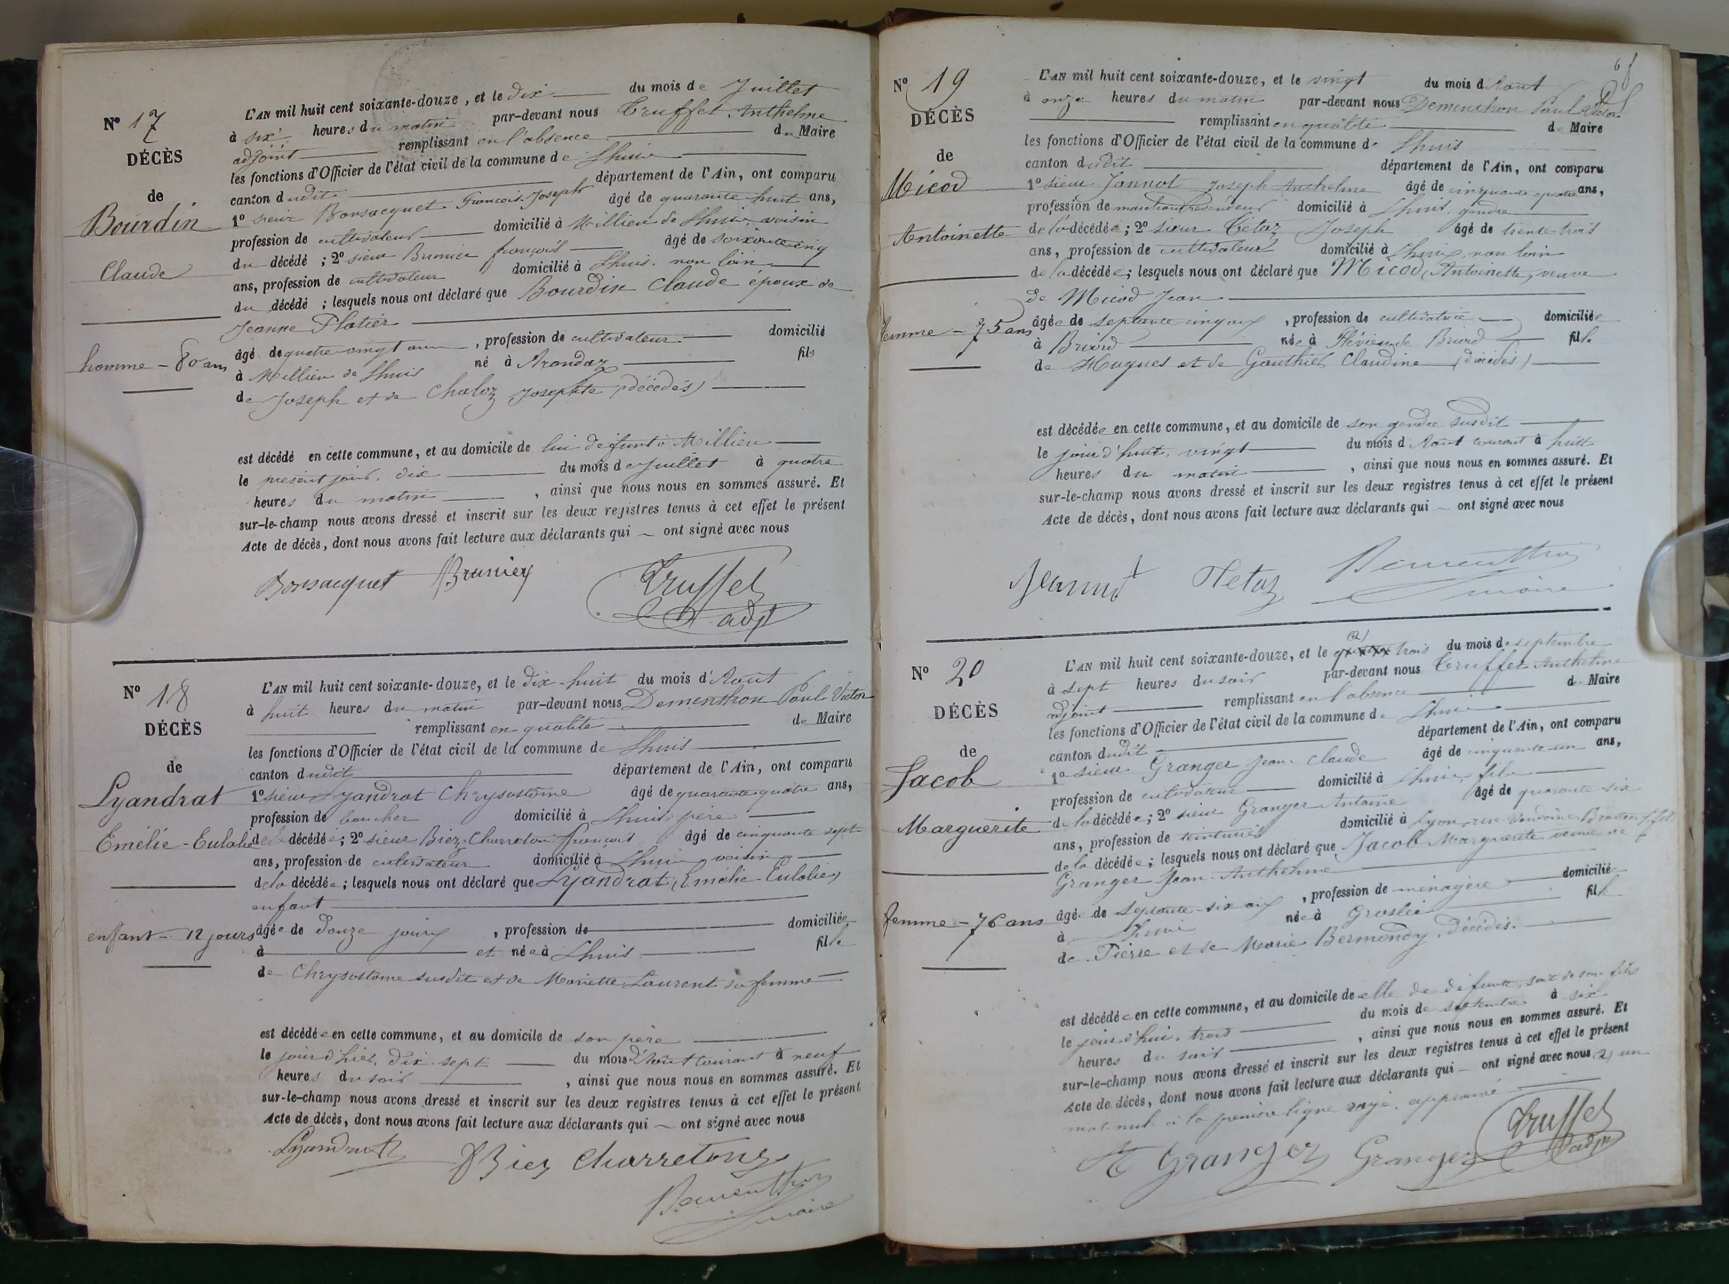 N° 17
DÉCÈS
de
Bourdin
Claude
homme - 80 ans
L'AN mil huit cent soixante-douze, et le dix du mois de Juillet
à six heures du matin par-devant nous Truffet Anthelme
adjoint remplissant en l'absence du Maire
les fonctions d'Officier de l'état civil de la commune de Lhuis
canton dudit département de l'Ain, ont comparu
1° sieur Borsacquet François Joseph âgé de quarante huit ans,
profession de cultivateur domicilié à Millieu de Lhuis voisin
du décédé ; 2° sieur Brunier françois âgé de soixante cinq
ans, profession de cultivateur domicilié à Lhuis non loin
du décédé ; lesquels nous ont déclaré que Bourdin Claude époux de
Jeanne Platier
âgé de quatre vingt ans, profession de cultivateur domicilié
à Millieu de Lhuis né à Arandaz fils
de Joseph et de Chaloz Josephte (décédés)
est décédé en cette commune, et au domicile de lui défunt à Millieu
le présent jour, dix du mois de Juillet à quatre
heures du matin, ainsi que nous nous en sommes assuré. Et
sur-le-champ nous avons dressé et inscrit sur les deux registres tenus à cet effet le présent
Acte de décès, dont nous avons fait lecture aux déclarants qui ont signé avec nous
Borsacquet Brunier Truffet
adjt
N° 18
DÉCÈS
de
Lyandrat
Emélie-Eulalie
enfant - 12 jours
L'AN mil huit cent soixante-douze, et le dix-huit du mois d'Aout
à huit heures du matin par-devant nous Dementhon Paul Victor
remplissant en qualité de Maire
les fonctions d'Officier de l'état civil de la commune de Lhuis
canton dudit département de l'Ain, ont comparu
1° sieur Lyandrat Chrysostome âgé de quarante quatre ans,
profession de boucher domicilié à Lhuis père
de la décédée ; 2° sieur Biez-Charreton françois âgé de cinquante sept
ans, profession de cultivateur domicilié à Lhuis voisin
de la décédée ; lesquels nous ont déclaré que Lyandrat Emélie Eulalie,
enfant
âgée de douze jours, profession de domiciliée
à et née à Lhuis fille
de Chrysostome susdit et de Mariette Laurent sa femme
est décédée en cette commune, et au domicile de son père
le jour d'hier, dix sept du mois d'Aout courant à neuf
heures du soir, ainsi que nous nous en sommes assuré. Et
sur-le-champ nous avons dressé et inscrit sur les deux registres tenus à cet effet le présent
Acte de décès, dont nous avons fait lecture aux déclarants qui ont signé avec nous
Lyandrat Biez Charreton
Dementhon
maire
N° 19
DÉCÈS
de
Micod
Antoinette
femme - 75 ans
L'AN mil huit cent soixante-douze, et le vingt du mois d'Aout
à onze heures du matin par-devant nous Dementhon Paul Victor
remplissant en qualité de Maire
les fonctions d'Officier de l'état civil de la commune de Lhuis
canton dudit département de l'Ain, ont comparu
1° sieur Jannot Joseph Anthelme âgé de cinquante quatre ans,
profession de domicilié à Lhuis, gendre
de la décédée ; 2° sieur Tetaz Joseph âgé de trente trois
ans, profession de cultivateur domicilié à Lhuis, non loin
de la décédée ; lesquels nous ont déclaré que Micod Antoinette, veuve
de Micod Jean
âgée de septante cinq ans, profession de cultivatrice domiciliée
à Briord née à Brierd fille
de Hugues et de Gauthier Claudine (décédés)
est décédée en cette commune, et au domicile de son gendre susdit
le jour d'huit, vingt du mois d'Aout courant à huit
heures du matin, ainsi que nous nous en sommes assuré. Et
sur-le-champ nous avons dressé et inscrit sur les deux registres tenus à cet effet le présent
Acte de décès, dont nous avons fait lecture aux déclarants qui ont signé avec nous
Tetaz Dementhon
maire
N° 20
DÉCÈS
de
Jacob
Marguerite
femme - 76 ans
L'AN mil huit cent soixante-douze, et le trois du mois de septembre
à sept heures du soir par-devant nous Truffet Anthelme
adjoint remplissant en l'absence du Maire
les fonctions d'Officier de l'état civil de la commune de Lhuis
canton dudit département de l'Ain, ont comparu
1° sieur Granger Jean Claude âgé de cinquante un ans,
profession de cultivateur domicilié à Lhuis, fils
de la décédée ; 2° sieur Granger Antoine âgé de quarante six
ans, profession de teinturier domicilié à Lyon, rue Vendôme
de la décédée ; lesquels nous ont déclaré que Jacob Marguerite veuve de
Granger Jean Anthelme
âgée de septante-six ans, profession de ménagère domiciliée
à Lhuis née à Groslée fille
de Pierre et de Marie Bermondy, décédés.
est décédée en cette commune, et au domicile de elle de défunte, soit de son fils
le jour d'hui, trois du mois de septembre à six
heures du soir, ainsi que nous nous en sommes assuré. Et
sur-le-champ nous avons dressé et inscrit sur les deux registres tenus à cet effet le présent
Acte de décès, dont nous avons fait lecture aux déclarants qui ont signé avec nous (2) un
mot nul à la première ligne rayé, approuvé
Granger Granger Truffet
adjt